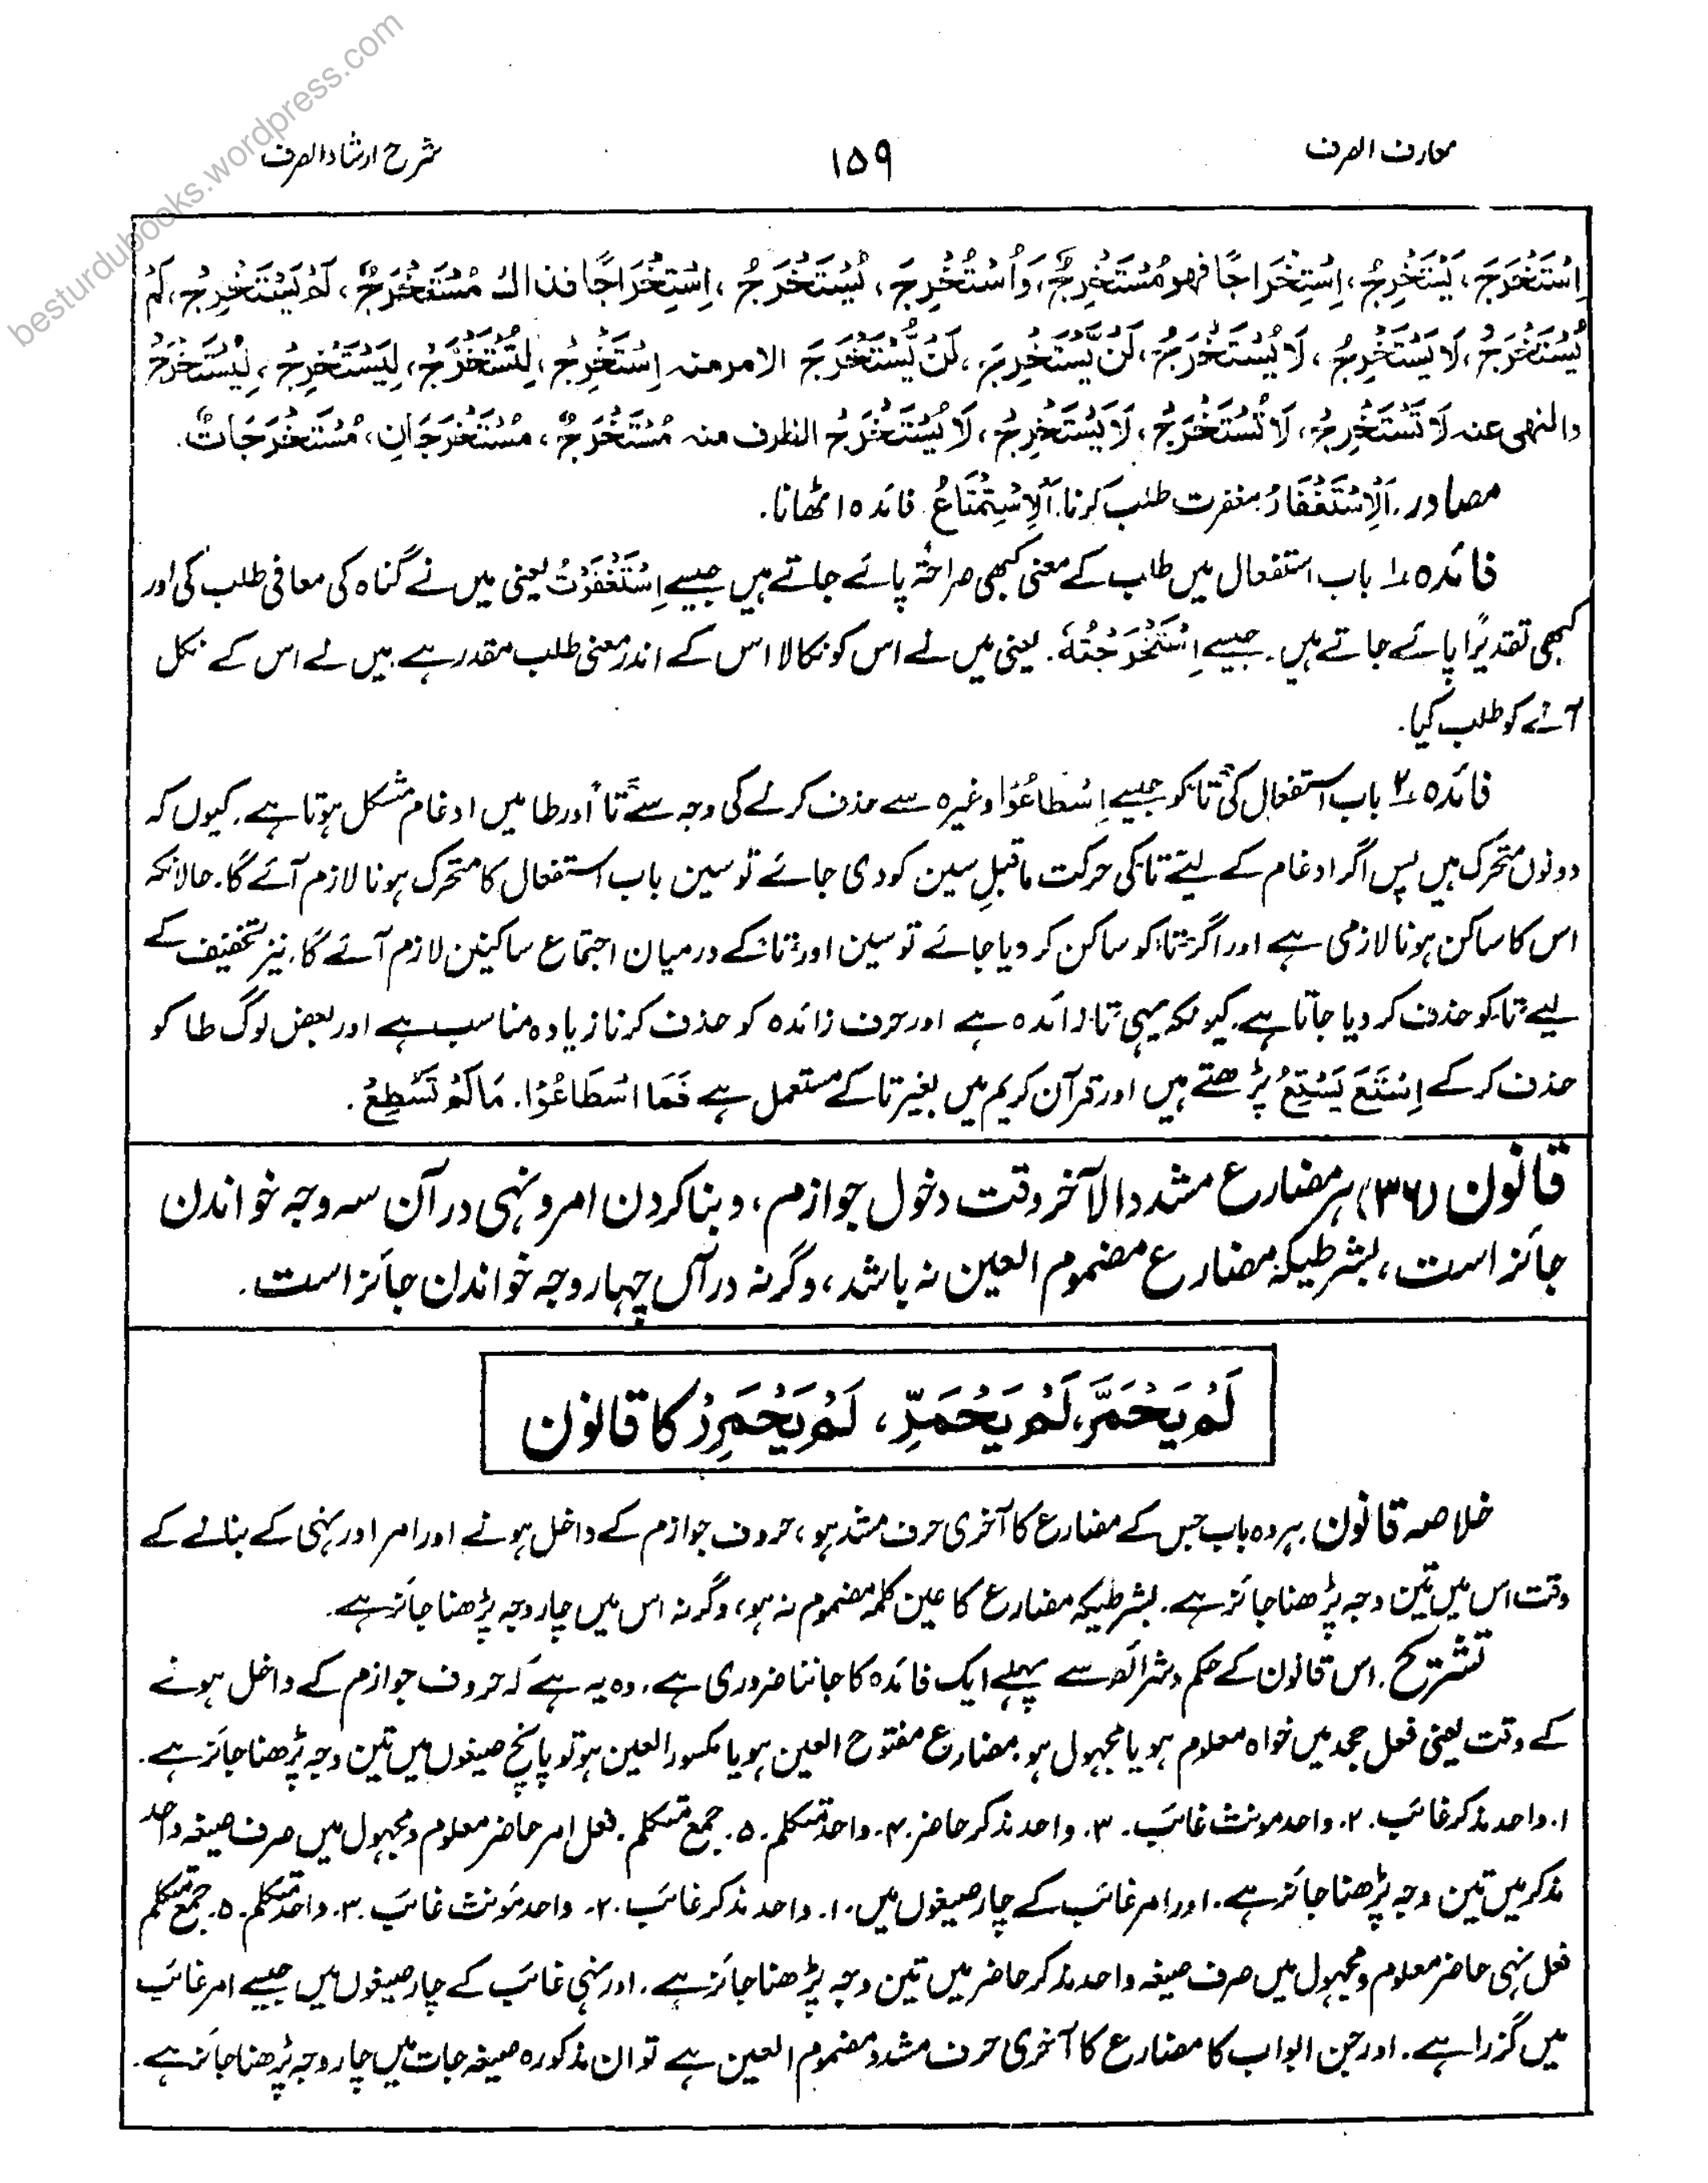 besturdubooks.wordpress.com
معارف الصرف
۱۵۹
شرح ارشاد الصرف
اِسْتَخْرَجَ، یَسْتَخْرِجُ، اِسْتِخْرَاجًا فهو مُسْتَخْرِجٌ، وَاُسْتُخْرِجَ، یُسْتَخْرَجُ، اِسْتِخْرَاجًا فذاك مُسْتَخْرَجٌ، لَمْ یَسْتَخْرِجْ، لَمْ
یُسْتَخْرَجْ، لَا یَسْتَخْرِجُ، لَا یُسْتَخْرَجُ، لَنْ یَّسْتَخْرِجَ، لَنْ یُّسْتَخْرَجَ الامر منہ اِسْتَخْرِجْ، لِتُسْتَخْرَجْ، لِیَسْتَخْرِجْ، لِیُسْتَخْرَجْ
والنهی عنہ لَا تَسْتَخْرِجْ، لَا تُسْتَخْرَجْ، لَا یَسْتَخْرِجْ، لَا یُسْتَخْرَجْ الظرف منہ مُسْتَخْرَجٌ، مُسْتَخْرَجَانِ، مُسْتَخْرَجَاتٌ.
مصادر۔ اَلْاِسْتِغْفَارُ مغفرت طلب کرنا۔ اَلْاِسْتِمْتَاعُ فائدہ اٹھانا۔
فائدہ ۱ باب استفعال میں طلب کے معنی کبھی صراحۃً پائے جاتے ہیں جیسے اِسْتَغْفَرْتُ یعنی میں نے گناہ کی معافی طلب کی اور
کبھی تقدیرًا پائے جاتے ہیں۔ جیسے اِسْتَخْرَجْتُهٗ۔ یعنی میں نے اس کو نکالا اس کے اندر معنی طلب مقدر ہے میں نے اس کے نکل
آنے کو طلب کیا۔
فائدہ ۲ باب استفعال کی تا کو جیسے اِسْطَاعُوْا وغیرہ سے حذف کرنے کی وجہ سے تا اور طا میں ادغام مشکل ہوتا ہے۔ کیوں کہ
دونوں متحرک ہیں پس اگر ادغام کے لیئے تا کی حرکت ماقبل سین کو دی جائے تو سین باب استفعال کا متحرک ہونا لازم آئے گا۔ حالانکہ
اس کا ساکن ہونا لازمی ہے اور اگر تا کو ساکن کر دیا جائے تو سین اور تا کے درمیان اجتماع ساکنین لازم آئے گا۔ نیز تخفیف کے
لیے تا کو حذف کر دیا جاتا ہے۔ کیونکہ یہی تا زائدہ ہے اور حرف زائدہ کو حذف کرنا زیادہ مناسب ہے اور بعض لوگ طا کو
حذف کر کے اِسْتَعَ یَسْتِعُ پڑھتے ہیں اور قرآن کریم میں بغیر تا کے مستعمل ہے فَمَا اسْطَاعُوْا۔ مَا لَمْ تَسْطِعْ۔
قانون (۳۶) ہر مضارع مشدد الآخر وقت دخول جوازم، و بنا کردن امر و نہی در آن سہ وجہ خواندن
جائز است، بشرطیکہ مضارع مضموم العین نہ باشد، وگرنہ در آں چہار وجہ خواندن جائز است۔
لَمْ یَحْمَرَّ، لَمْ یَحْمَرِّ، لَمْ یَحْمَرِرْ کا قانون
خلاصہ قانون ہر وہ باب جس کے مضارع کا آخری حرف مشدد ہو، حروف جوازم کے داخل ہونے اور امر اور نہی کے بنانے کے
وقت اس میں تین وجہ پڑھنا جائز ہے۔ بشرطیکہ مضارع کا عین کلمہ مضموم نہ ہو، وگرنہ اس میں چار وجہ پڑھنا جائز ہے۔
تشریح۔ اس قانون کے حکم و شرائط سے پہلے ایک فائدہ کا جاننا ضروری ہے۔ وہ یہ ہے کہ حروف جوازم کے داخل ہونے
کے وقت یعنی فعل جحد میں خواہ معلوم ہو یا مجہول ہو۔ مضارع مفتوح العین ہو یا مکسور العین ہو تو پانچ صیغوں میں تین وجہ پڑھنا جائز ہے۔
۱۔ واحد مذکر غائب۔ ۲۔ واحد مونث غائب۔ ۳۔ واحد مذکر حاضر۔ ۴۔ واحد متکلم۔ ۵۔ جمع متکلم۔ فعل امر حاضر معلوم و مجہول میں صرف صیغہ واحد
مذکر میں تین وجہ پڑھنا جائز ہے۔ اور امر غائب کے چار صیغوں میں۔ ۱۔ واحد مذکر غائب۔ ۲۔ واحد مؤنث غائب۔ ۳۔ واحد متکلم۔ ۵۔ جمع متکلم
فعل نہی حاضر معلوم و مجہول میں صرف صیغہ واحد مذکر حاضر میں تین وجہ پڑھنا جائز ہے۔ اور نہی غائب کے چار صیغوں میں جیسے امر غائب
میں گزرا ہے۔ اور جن ابواب کا مضارع کا آخری حرف مشدد مضموم العین ہے تو ان مذکورہ صیغہ جات میں چار وجہ پڑھنا جائز ہے۔